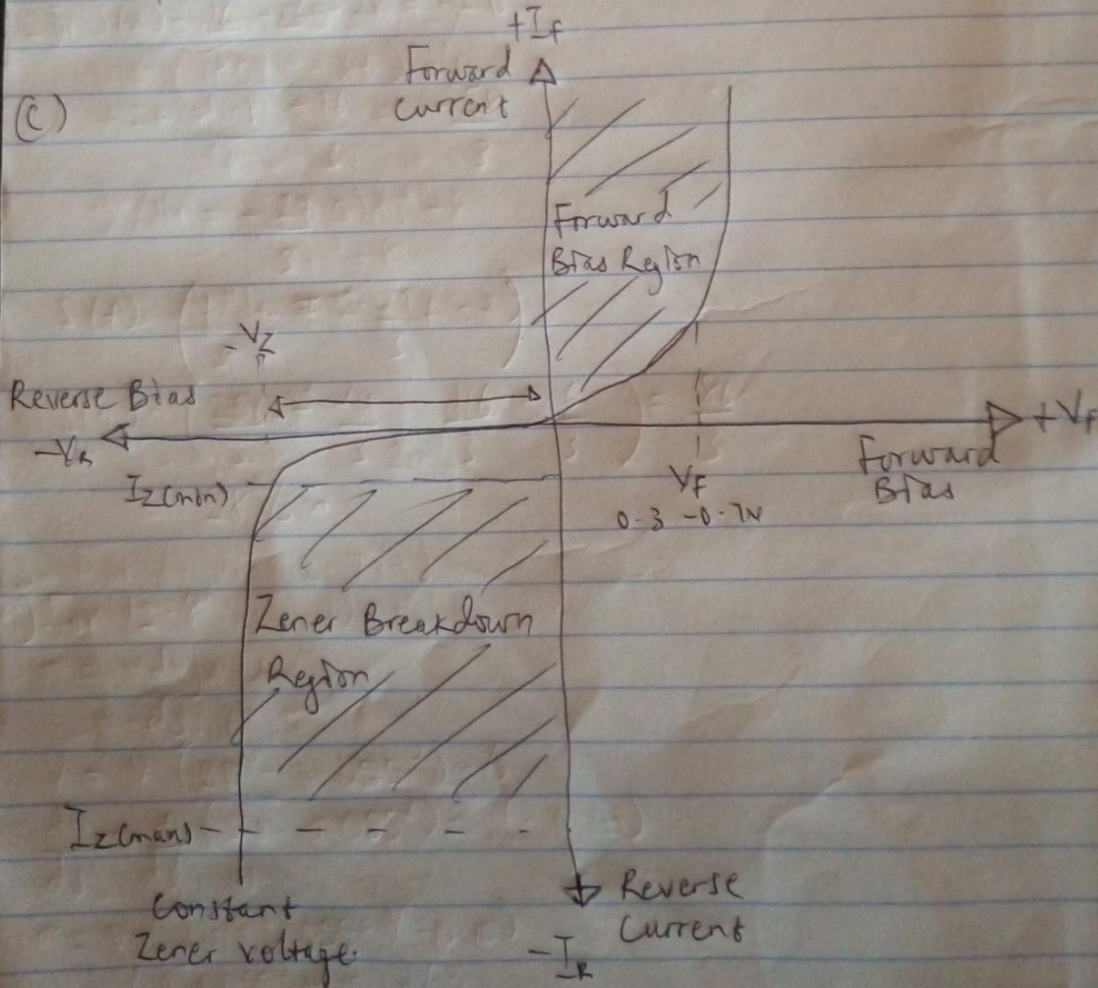 +I_F
Forward
Current
(C)
Forward
Bias Region
-V_Z
Reverse Bias
-V_R
+V_F
Forward
Bias
I_Z(min)
V_F
0.3 -0.7V
Zener Breakdown
Region
I_Z(max)
Constant
Zener voltage.
Reverse
Current
-I_R